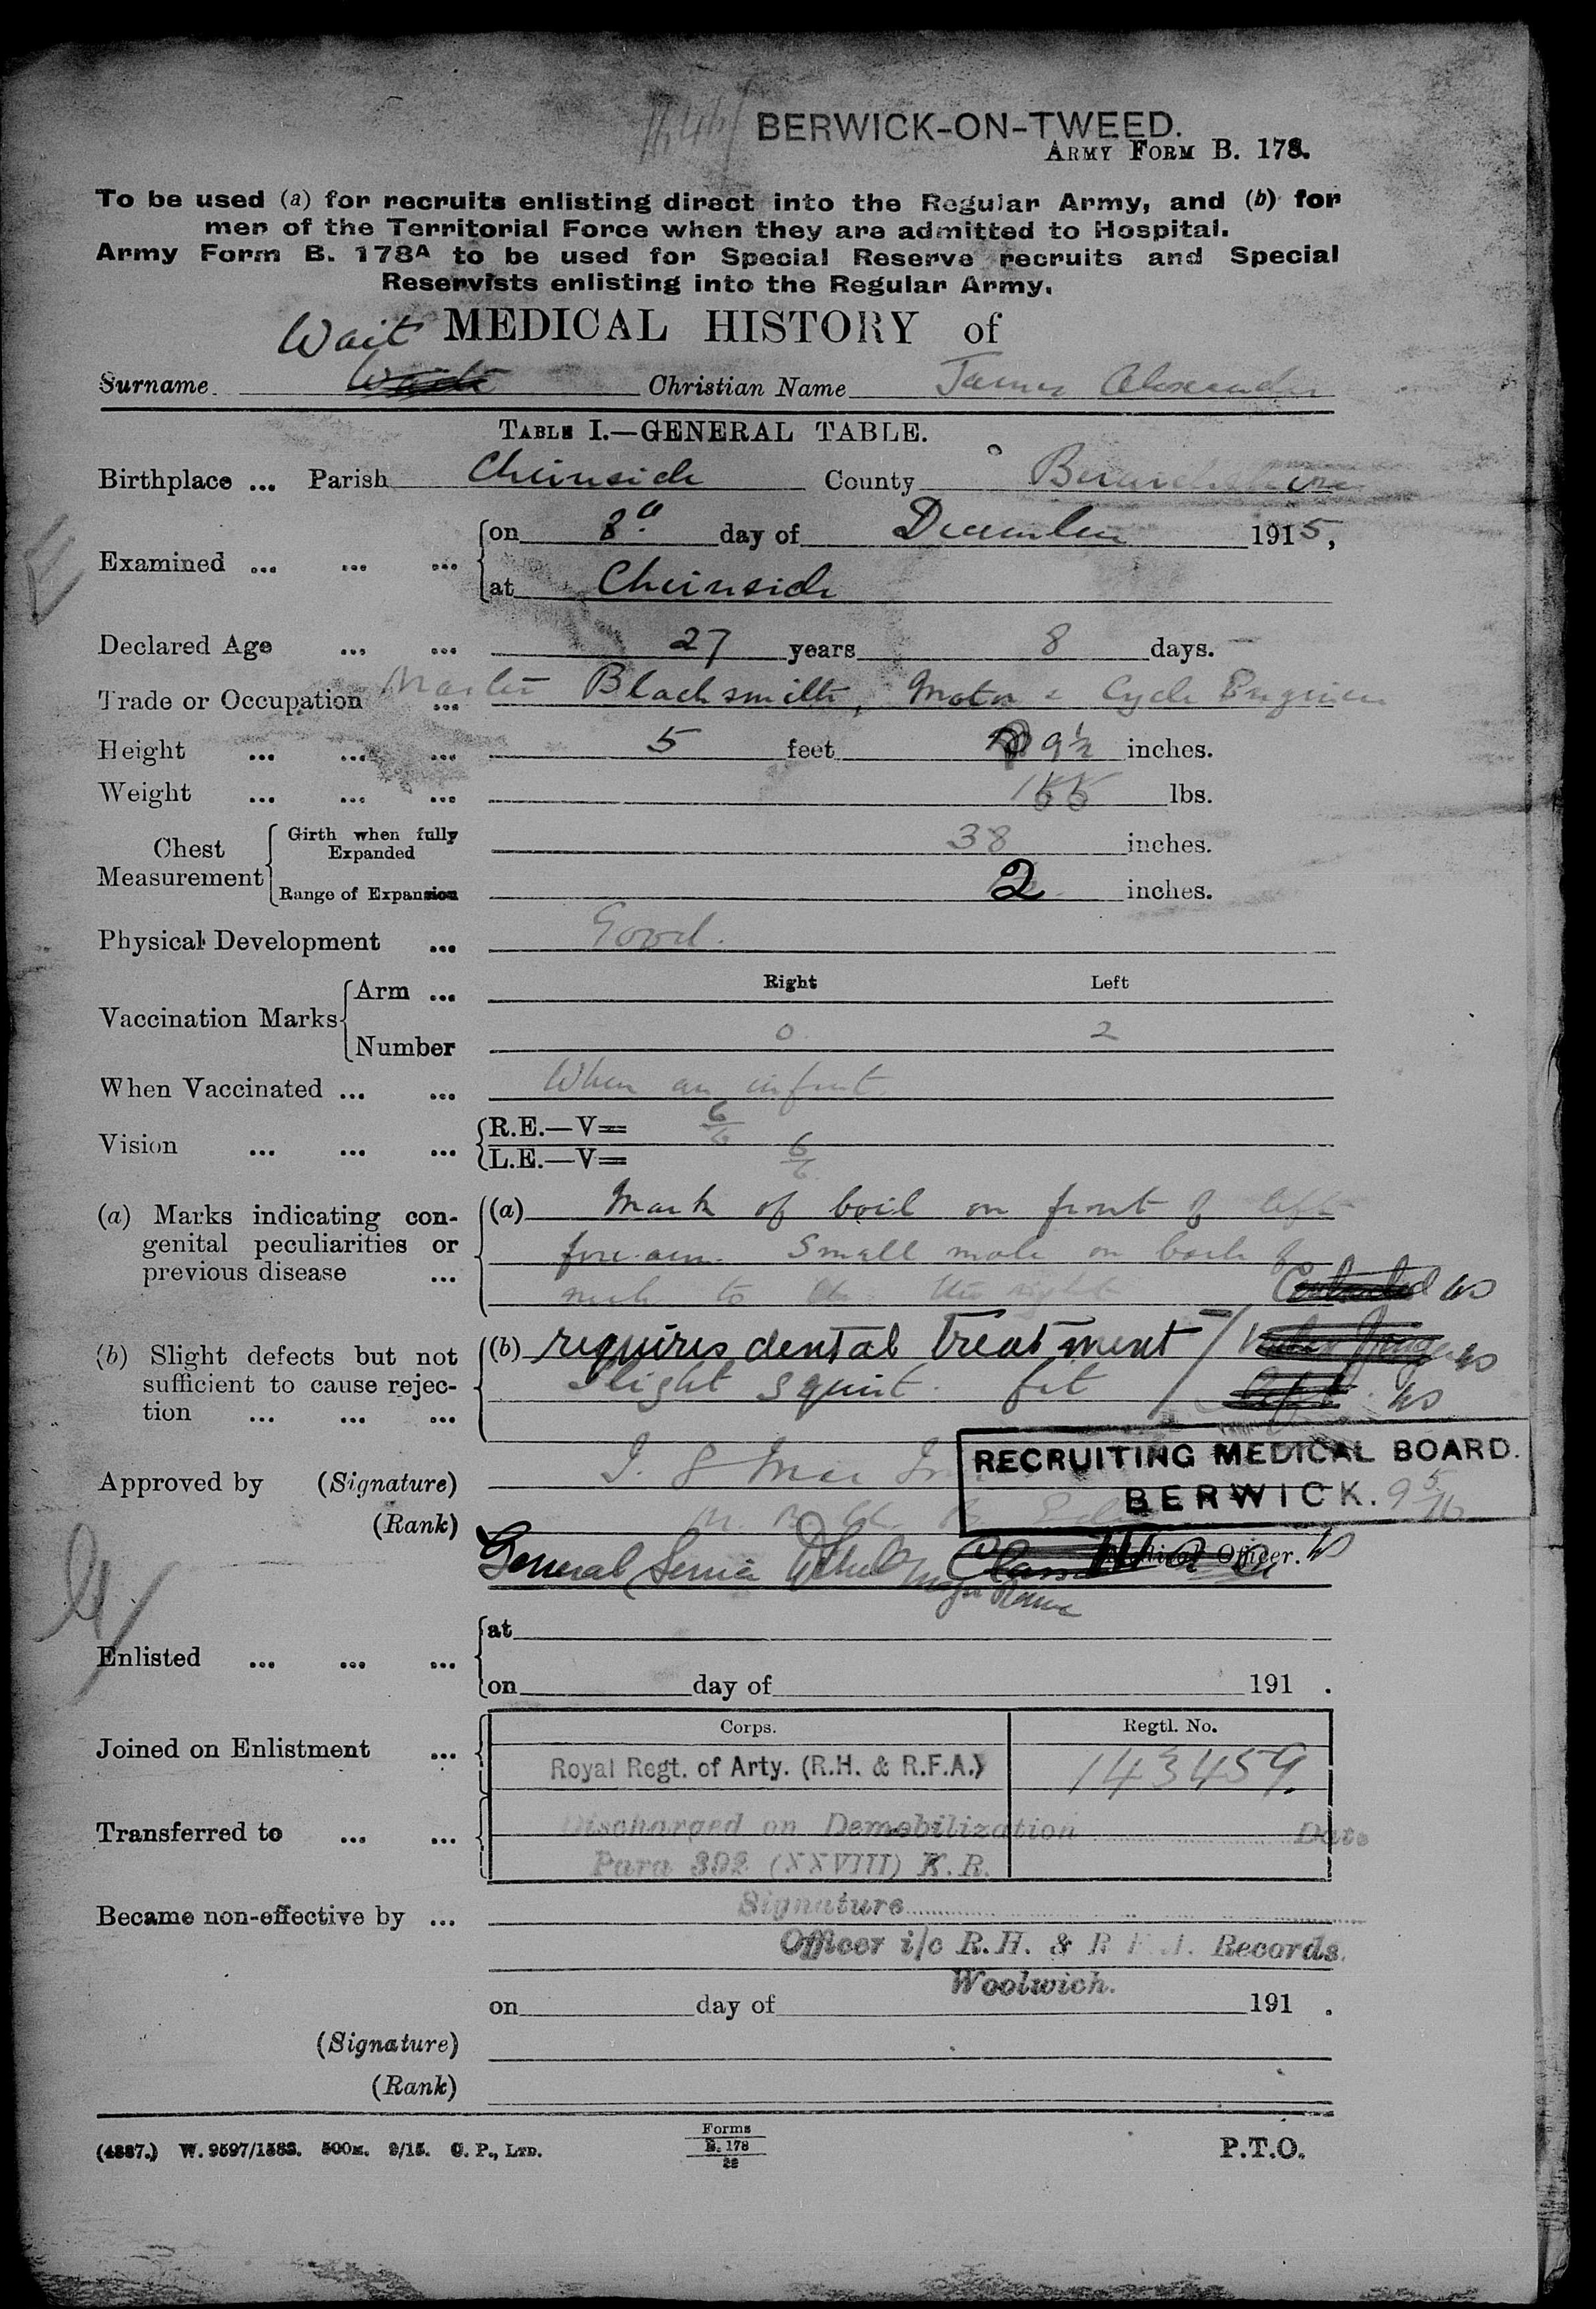 BERWICK-ON-TWEED.
ARMY FORM B. 178.
To be used (a) for recruits enlisting direct into the Regular Army, and (b) for
men of the Territorial Force when they are admitted to Hospital.
Army Form B. 178A to be used for Special Reserve recruits and Special
Reservists enlisting into the Regular Army.
Wait MEDICAL HISTORY of
Surname Christian Name James Alexander
TABLE I.—GENERAL TABLE.
Birthplace ... Parish Chirnside County Berwickshire
Examined ... ... ... on 8th day of December 1915,
at Chirnside
Declared Age ... ... 27 years 8 days.
Trade or Occupation ... Master Blacksmith, Motor & Cycle Engineer
Height ... ... ... 5 feet 9½ inches.
Weight ... ... ... lbs.
Chest Measurement Girth when fully Expanded 38 inches.
Range of Expansion 2 inches.
Physical Development ... Good.
Right Left
Vaccination Marks Arm ...
Number 0 2
When Vaccinated ... ... When an infant.
Vision ... ... ... R.E.—V= 6/6
L.E.—V= 6/6
(a) Marks indicating congenital peculiarities or previous disease ... (a) Mark of boil on front of left
fore-arm. Small mole on back of
neck to the right
(b) Slight defects but not sufficient to cause rejection ... ... ... (b) requires dental treatment
Slight squint. fit
RECRUITING MEDICAL BOARD.
BERWICK. 9 5/16
Approved by (Signature)
(Rank)
Medical Officer.
General Service
Enlisted ... ... ... at
on day of 191 .
Corps. Regtl. No.
Joined on Enlistment ... Royal Regt. of Arty. (R.H. & R.F.A.) 143459
Transferred to ... ... Discharged on Demobilization Date
Para 392 (XXVIII) K.R.
Became non-effective by ... Signature
Officer i/c R.H. & R.F.A. Records.
Woolwich.
on day of 191 .
(Signature)
(Rank)
(4887.) W. 9597/1583. 500M. 9/15. C. P., LTD. Forms B. 178 / 28 P.T.O.